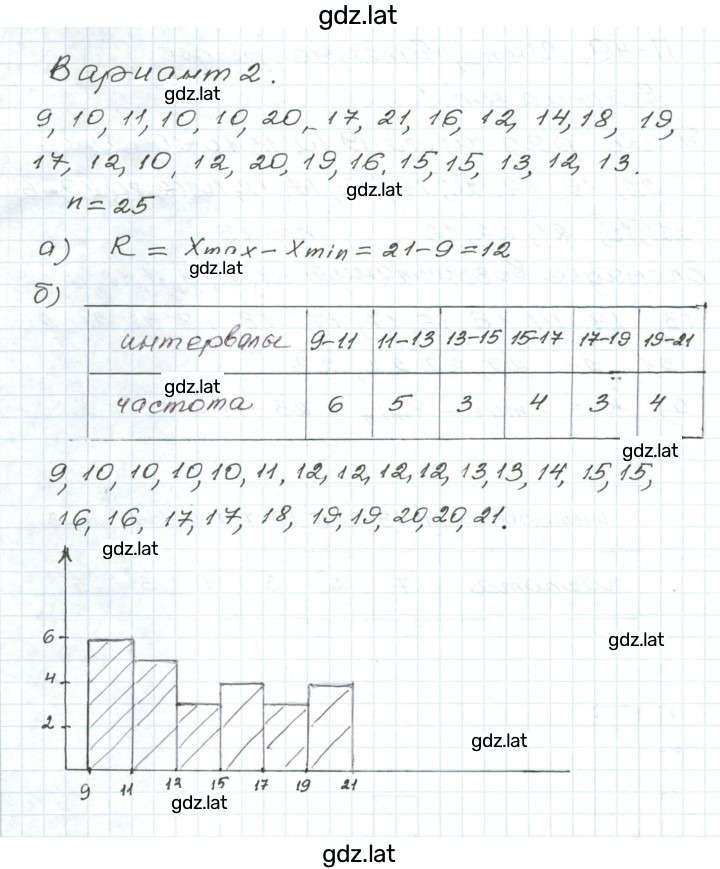 gdz.lat
Вариант 2.
gdz.lat
9, 10, 11, 10, 10, 20, 17, 21, 16, 12, 14, 18, 19,
17, 12, 10, 12, 20, 19, 16, 15, 15, 13, 12, 13.
gdz.lat
n = 25
а) R = Xmax - Xmin = 21-9 = 12
gdz.lat
б)
интервалы 9-11 11-13 13-15 15-17 17-19 19-21
gdz.lat
частота 6 5 3 4 3 4
gdz.lat
9, 10, 10, 10, 10, 11, 12, 12, 12, 12, 13, 13, 14, 15, 15,
16, 16, 17, 17, 18, 19, 19, 20, 20, 21.
gdz.lat
6
gdz.lat
4
2
gdz.lat
9 11 13 15 17 19 21
gdz.lat
gdz.lat